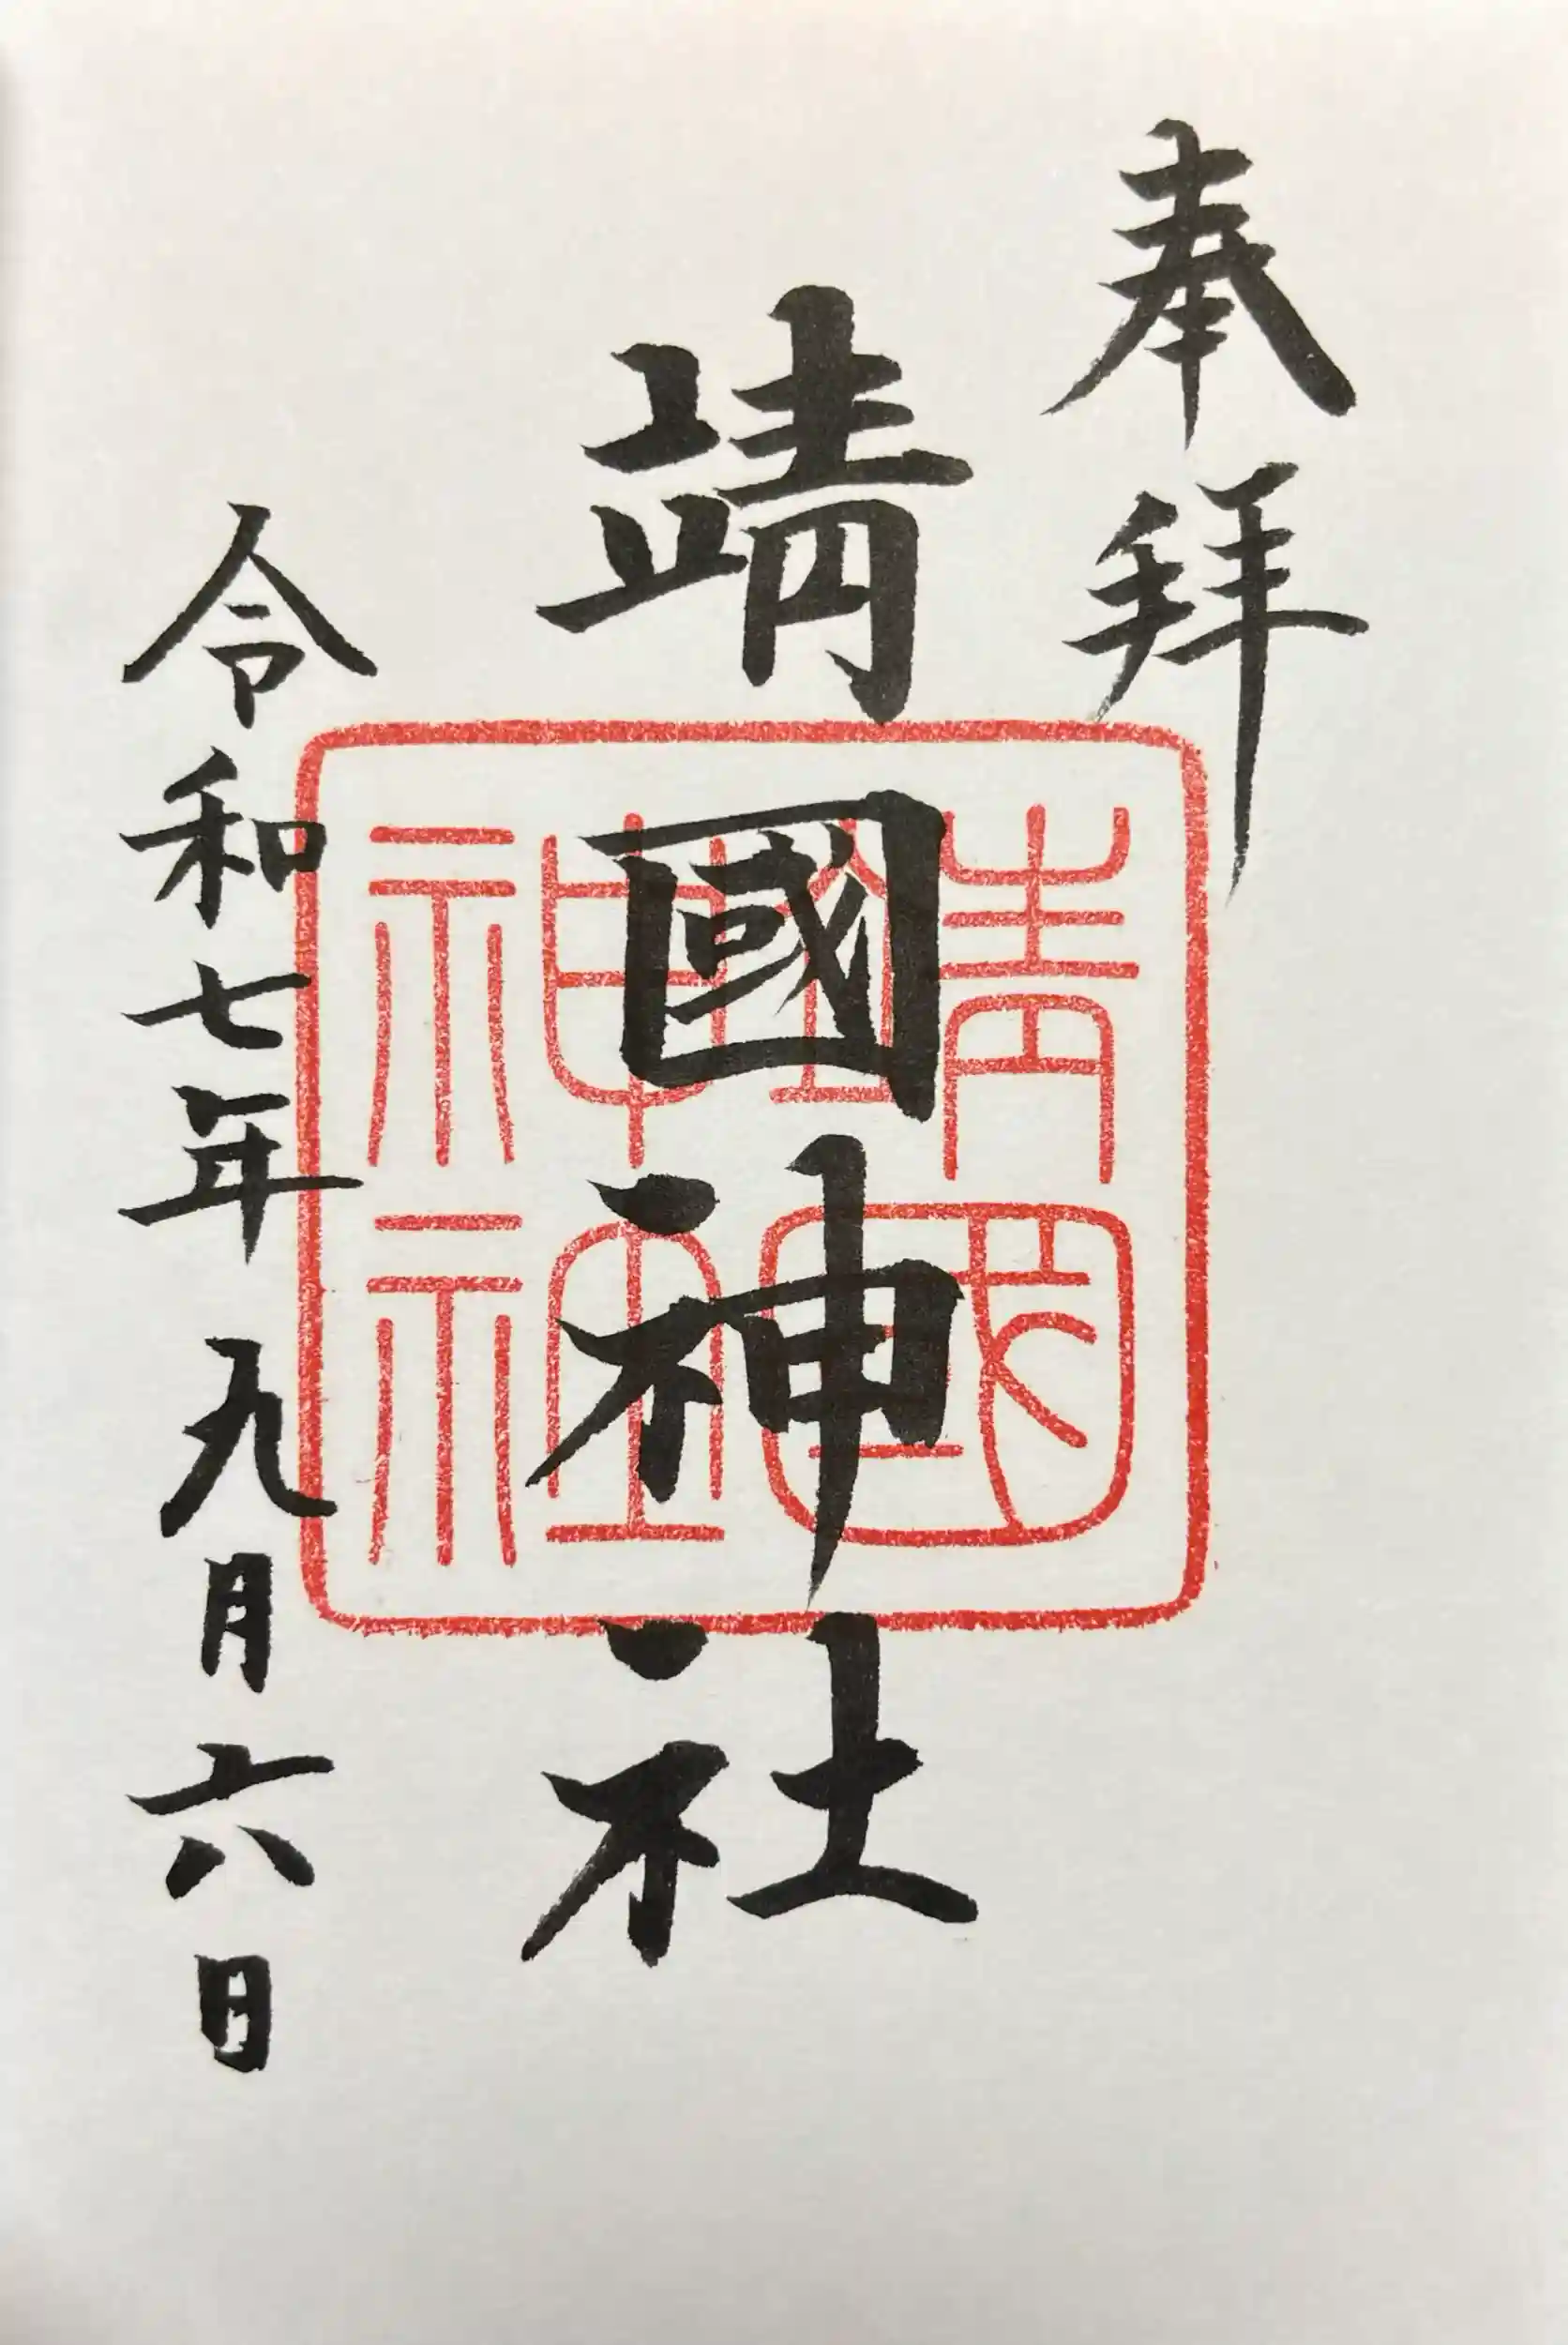 奉拝
靖國神社
令和七年九月六日
靖國
神社